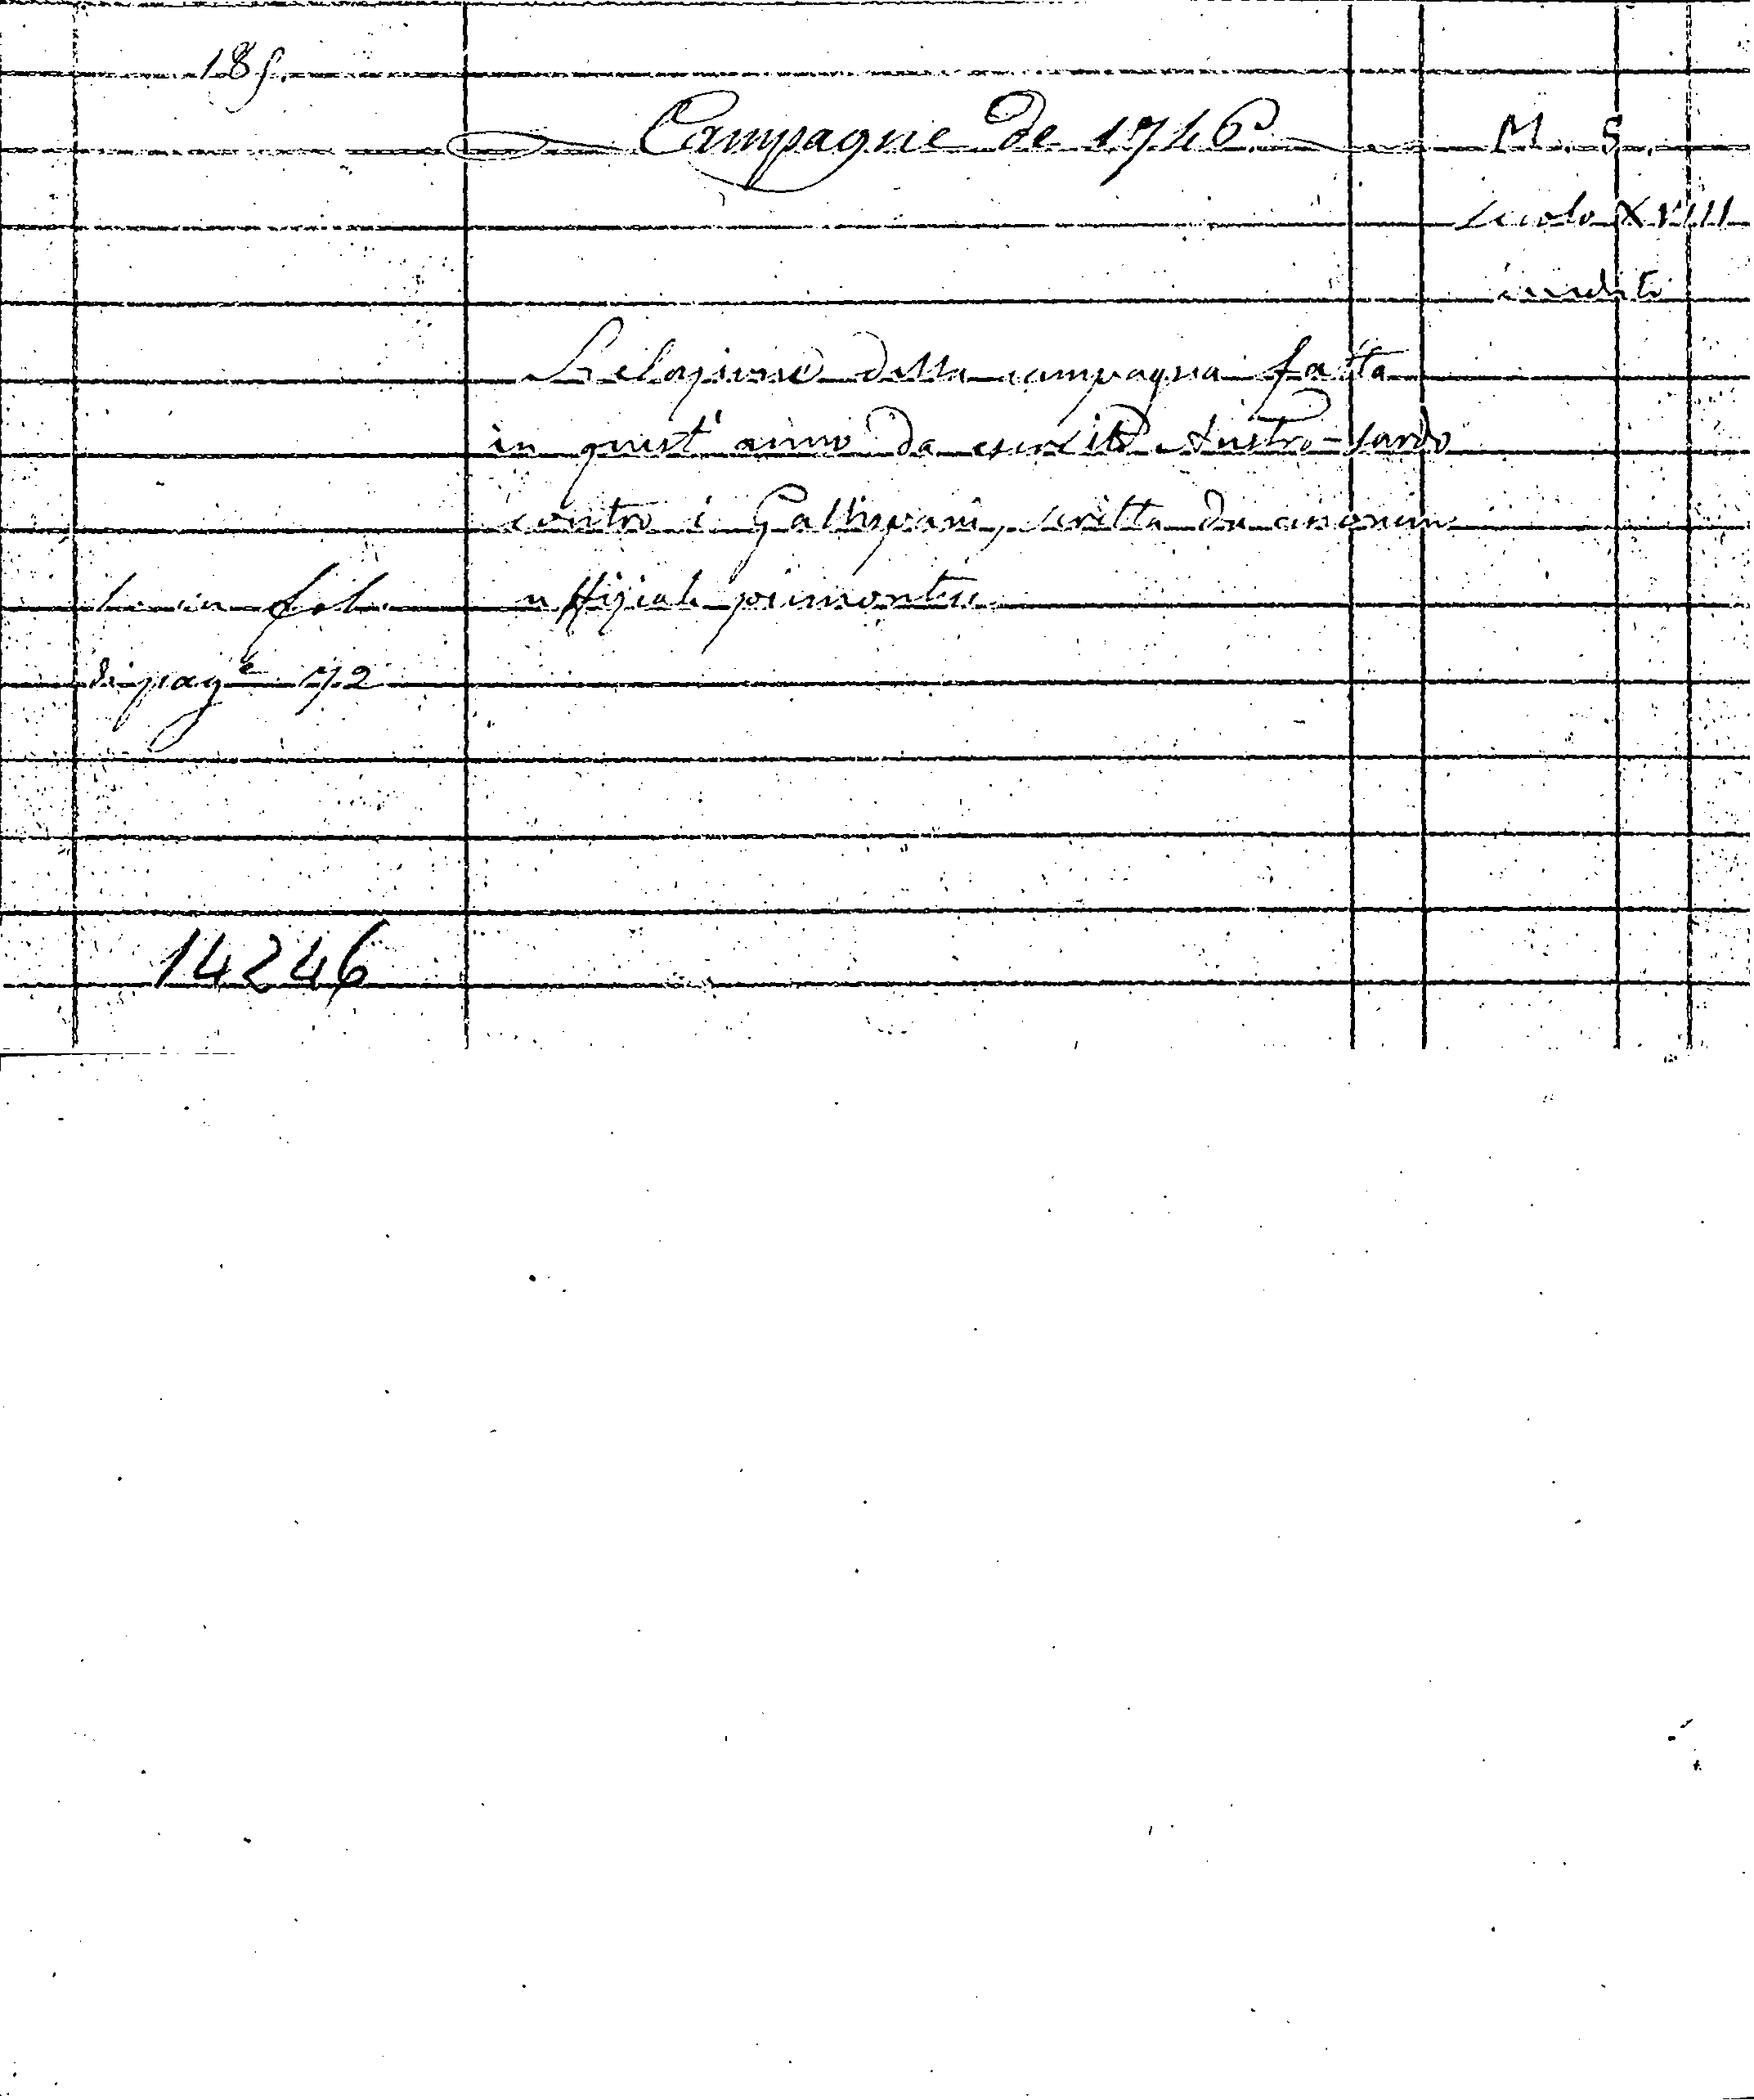 185.
Campagne de 1746. M. S.
secolo XVIII
inedito
Relazione della campagna fatta
in quest'anno da esercito Austro-Sardo
contro i Gallispani, scritta da anonimo
in fol. uffiziale piemontese
di pag.e 72
14246